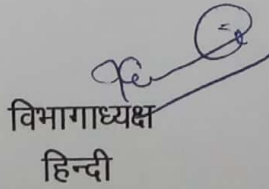 विभागाध्यक्ष
हिन्दी